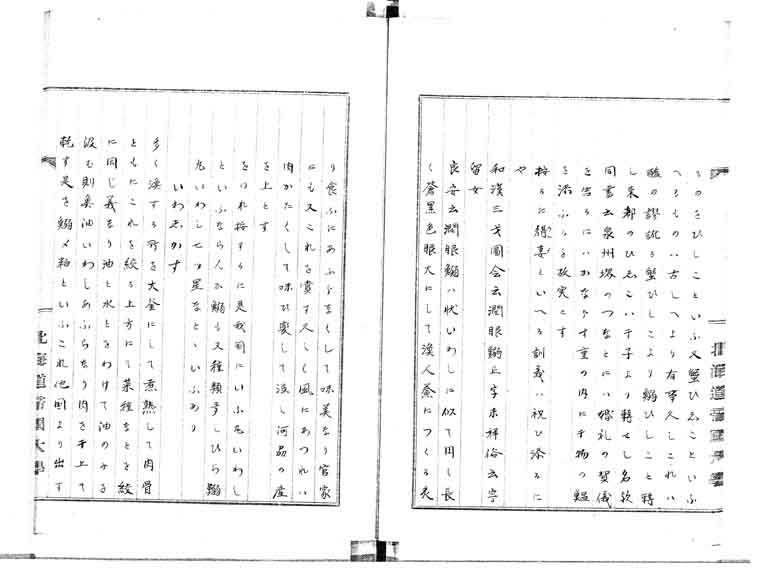 るのさひしこといふ又蟹ひしことといふ
へるものハ古しへより有事久しこれハ
醢の謬訛る蟹ひしこより鰯ひしこと轉
し京都のひしこハ干子より轉せし名欤
同書云泉州堺のつなとにハ婚礼の賀儀
を告るにいかならす重の内に干物の鰮
を添ふるを故実とす
按るに といへる訓義ハ祝ひ添るに
や
和漢三才圖会云潤眼鰯 字未祥俗云宇
留女
良安云潤眼鰯ハ状いわしに似て円く長
く蒼黒色眼大にして漁人 につくる炙
り食ふにあふらなくして味美なり官家
にも又これを賞す久しく風にあつれハ
肉かたくして味ひ変して渋し河 の産
を上とす
をのれ按するに是我国にいふ丸いわし
といふならん か鰯も又種類多しひら鰯
丸いわし七つ星なとゝいふあり
いわしかす
多く漁する所を大釜にして煮熟して肉骨
ともにこれを絞る上方にて菜種なとを絞
に同し義なり油と水とをわけて油のみを
汲む則魚油いわしあふらなり肉を干上て
乾す是を鰯〆粕といふこれ他国より出す
北海道帝國大學
北海道帝國大學